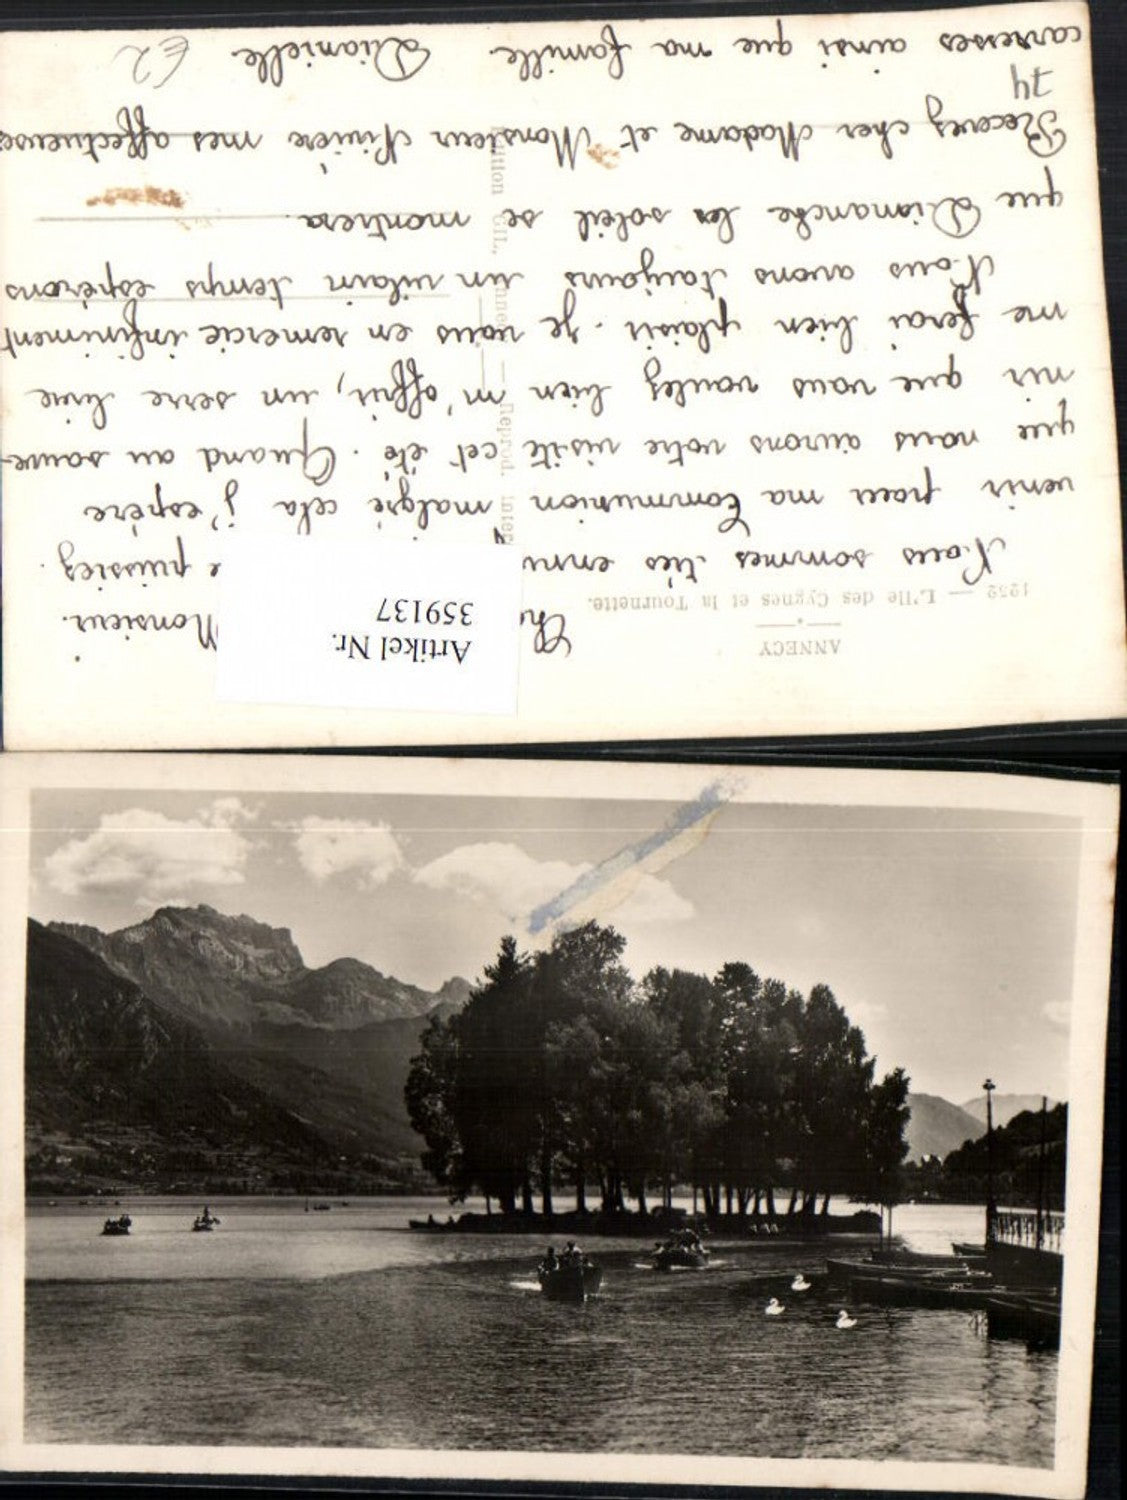 ANNECY
1252 — L'Ile des Cygnes et la Tournette.
Artikel Nr.
359137
Monsieur.
Nous sommes très puissiez
venir pour ma Communion malgré cela j'espère
que nous aurons votre visite cet été. Quand au souve-
nir que vous voulez bien m'offrir, un serre livre
me ferai bien plaisir. Je vous en remercie infiniment
Nous avons toujours un vilain temps espérons
que Dimanche les soleil se montrera.
Recevez cher Madame et Monsieur mes affectueuses
caresses ainsi que ma famille Dianielle
74
€2